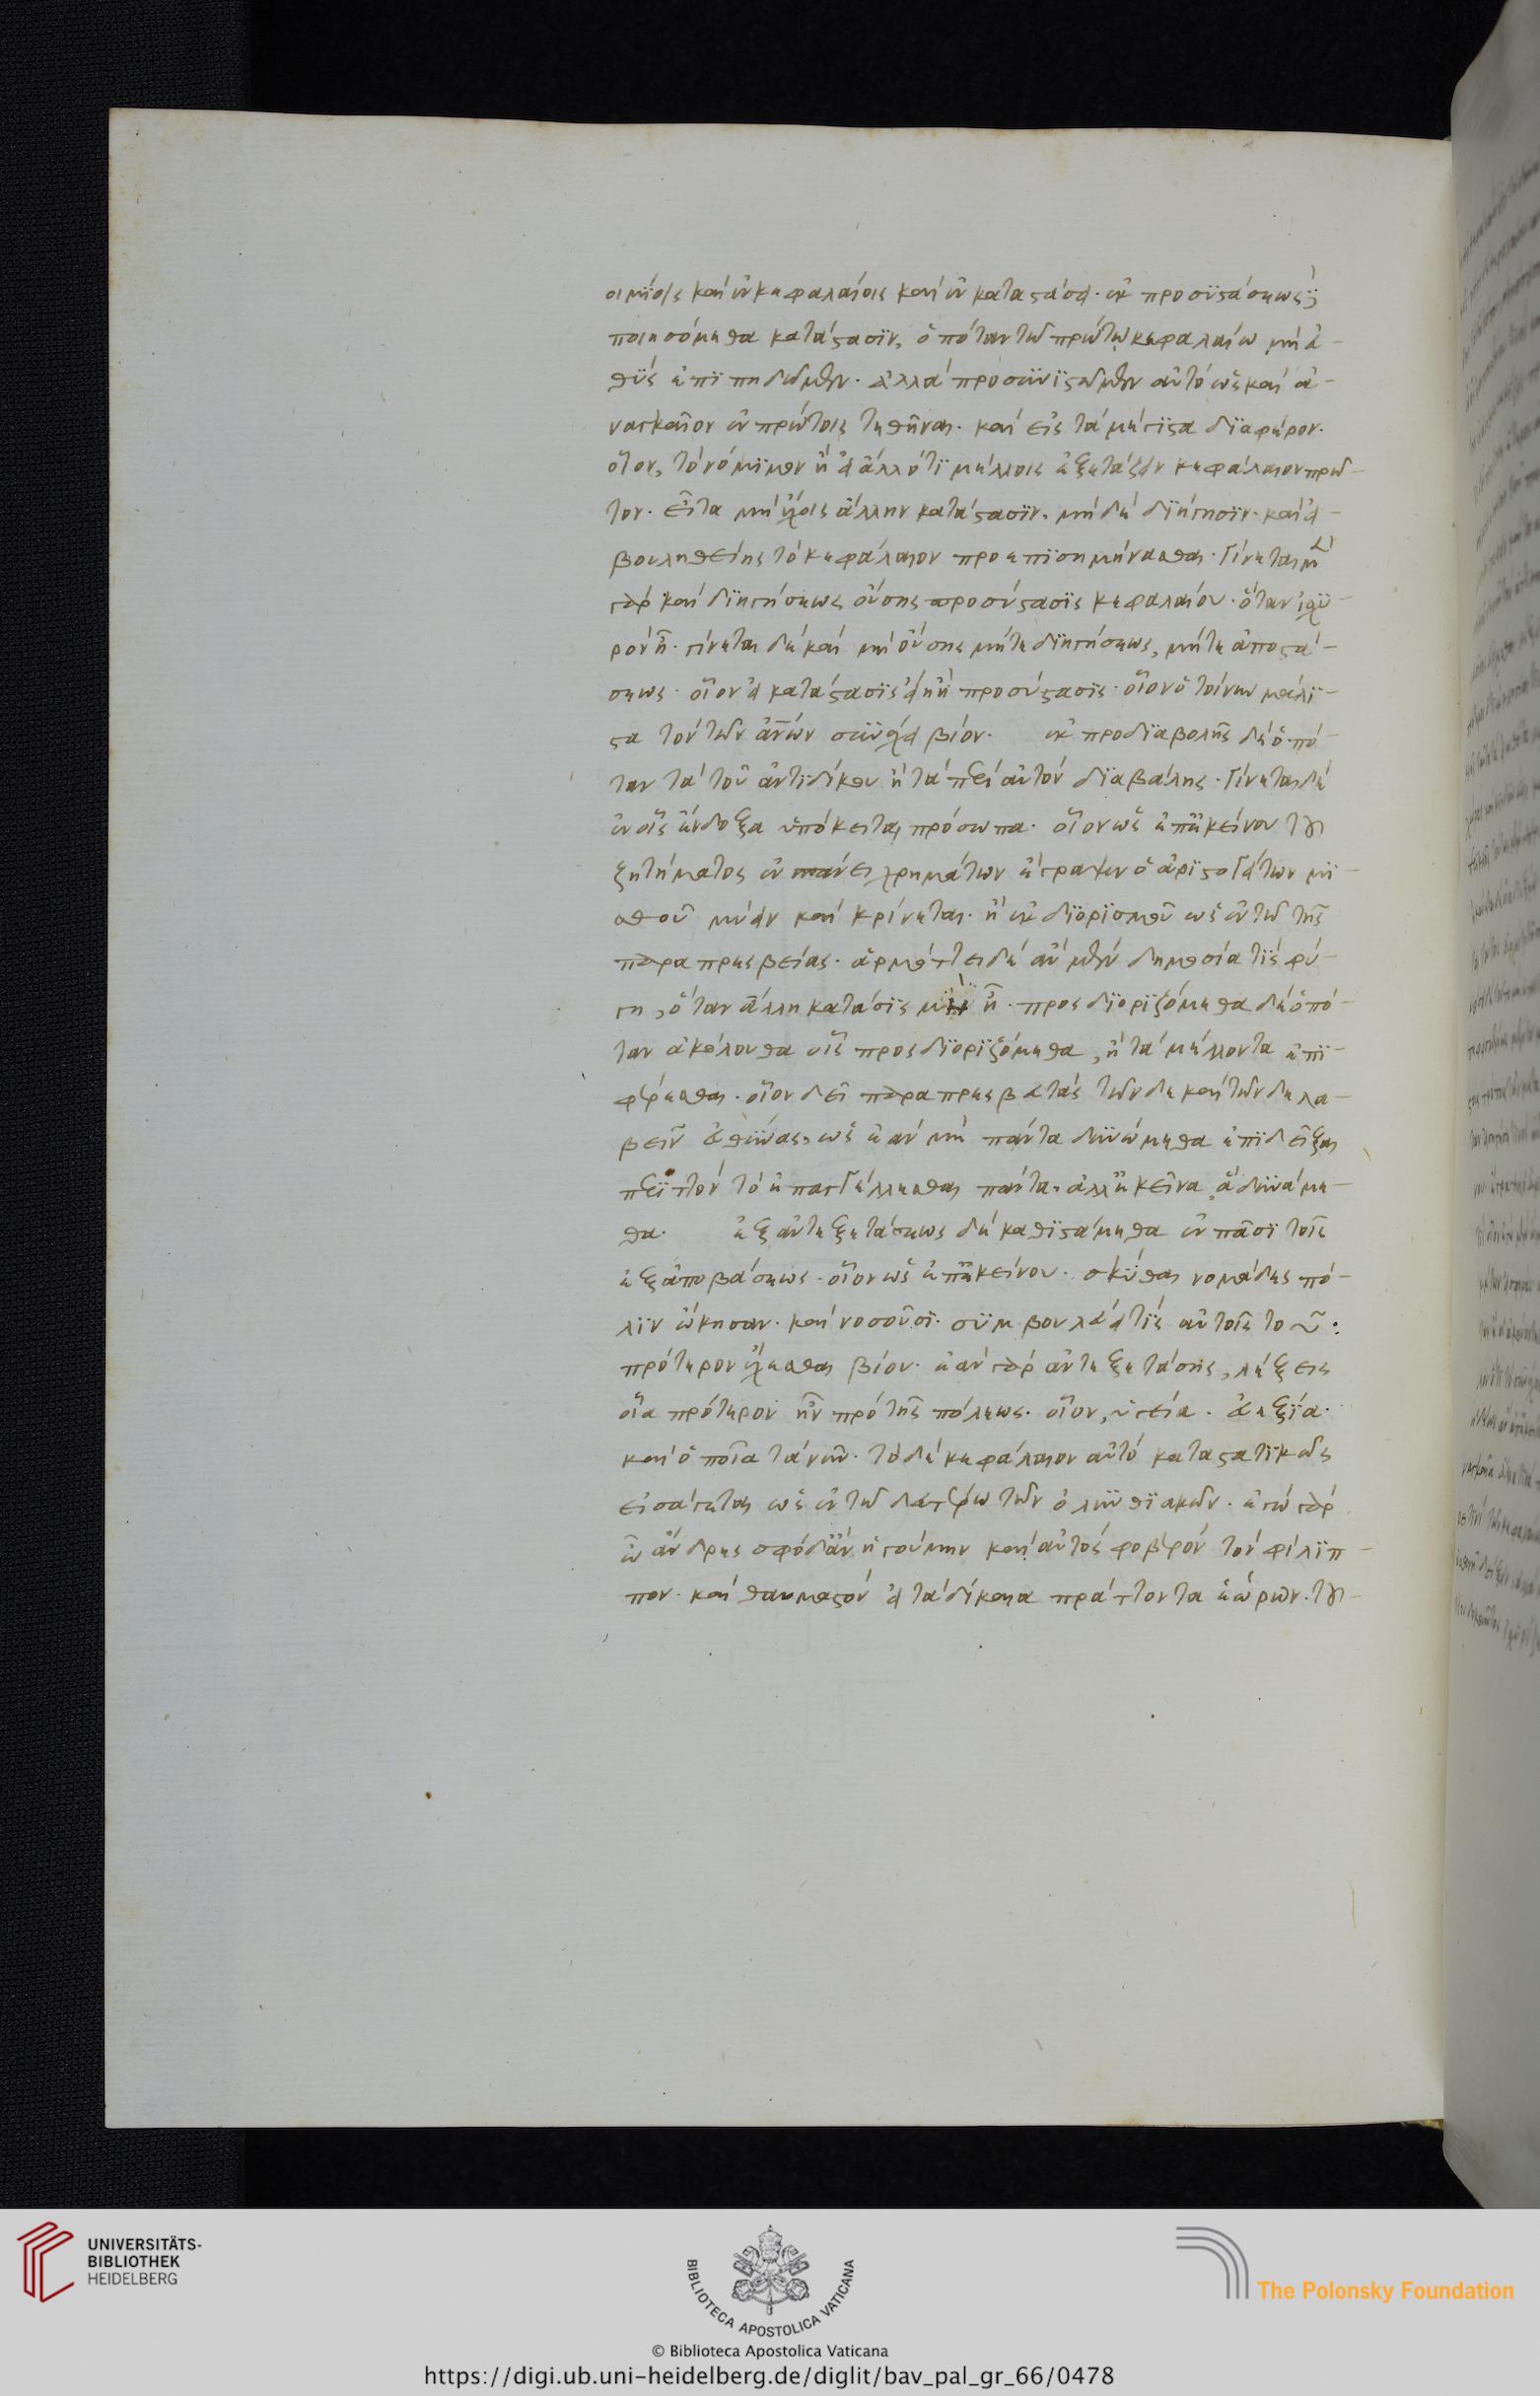 οιμίοις καὶ ἐν κεφαλαίοις καὶ ἐν καταστάσει· ἐκ προσυστάσεως
ποιησόμεθα κατάστασιν, ὁπόταν τῷ πρώτῳ κεφαλαίῳ μὴ εὐ-
θὺς ἐπιπηδῶμεν· ἀλλὰ προσυνιστῶμεν αὐτὸ ὡς καὶ ἀ-
ναγκαῖον ἐν πρώτοις τεθῆναι· καὶ εἰς τὰ μέγιστα διαφέρον·
οἷον, τὸ νόμιμον ἢ εἰ ἄλλό τι μέλλοις ἐξετάζειν κεφάλαιον πρῶ-
τον· εἶτα μὴ ἔχοις ἄλλην κατάστασιν· μὴ δὲ διήγησιν· καὶ εἰ
βουληθείης τὸ κεφάλαιον προεπισημήνασθαι· γίνεται μὲν
γὰρ καὶ διηγήσεως οὔσης προσύστασις κεφαλαίου· ὅταν ἰσχυ-
ρὸν ᾖ· γίνεται δὲ καὶ μὴ οὔσης μήτε διηγήσεως, μήτε ἀποστά-
σεως· οἷον εἰ κατάστασις εἴη ἡ προσύστασις· οἷον ὃ τοίνυν μάλι-
στα τὸν τῶν ἀνῶν συνέχει βίον· ἐκ προδιαβολῆς δὲ ὁπό-
ταν τὰ τοῦ ἀντιδίκου ἢ τὰ περὶ αὐτὸν διαβάλῃς· γίνεται δὲ
ἐν οἷς ἔνδοξα ὑπόκειται πρόσωπα· οἷον ὡς ἐπ' ἐκείνου τοῦ
ζητήματος ἐν πάνει χρημάτων ἔγραψεν ὁ ἀριστογείτων μι-
σθοῦ μύειν καὶ κρίνεται· ἢ ἐκ διορισμοῦ ὡς ἐν τῷ τῆς
παραπρεσβείας· ἁρμόττει δὲ αὖ μὲν δημοσία τις φύ-
γη, ὅταν ἄλλη κατάσις μὴ ᾖ· προσδιοριζόμεθα δὲ ὁπό-
ταν ἀκόλουθα οἷς προσδιοριζόμεθα, ἢ τὰ μέλλοντα ἐπι-
φέρεσθαι· οἷον δεῖ παραπρεσβευτὰς τῶνδε καὶ τῶνδε λα-
βεῖν εὐθύνας, ὡς ἐὰν μὴ πάντα δυνώμεθα ἐπιδεῖξαι
περιττὸν τὸ ἐπαγγέλλεσθαι πάντα· ἀλλ' ἐκεῖνα ἃ δυνάμε-
θα· ἐξ ἀντεξετάσεως δὲ καθιστάμεθα ἐν πᾶσι τοῖς
ἐξ ἀποβάσεως· οἷον ὡς ἐπ' ἐκείνου· σκύθαι νομάδες πό-
λιν ᾤκησαν· καὶ νοσοῦσι· συμβουλεύει τὶς αὐτοῖς τοῦ:
πρότερον ἔχεσθαι βίον· ἐὰν γὰρ ἀντεξετάσῃς, λέξεις
οἷα πρότερον ἦν πρὸ τῆς πόλεως· οἷον, ὑγεία· εὐεξία·
καὶ ὁποῖα τὰ νῦν· τὸ δὲ κεφάλαιον αὐτὸ καταστατικῶς
εἰσάγεται ὡς ἐν τῷ δευτέρῳ τῶν ὀλυνθιακῶν· ἐγὼ γὰρ
ὦ ἄνδρες σφόδρ' ἂν ἡγούμην καὶ αὐτὸς φοβερὸν τὸν φίλιπ-
πον· καὶ θαυμαστόν εἰ τὰ δίκαια πράττοντα ἑώρων· τοῦ
UNIVERSITÄTS-
BIBLIOTHEK
HEIDELBERG
BIBLIOTECA APOSTOLICA VATICANA
© Biblioteca Apostolica Vaticana
The Polonsky Foundation
https://digi.ub.uni-heidelberg.de/diglit/bav_pal_gr_66/0478